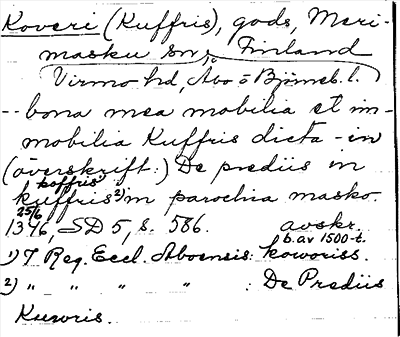 Koveri (Kuffris), gods, Meri-
masku sn, Finland
Virmo hd, Åbo o Björneb. l.
-- bona mea mobilia et im-
mobilia Kuffris dicta - in
(överskrift.) De prediis in
koffris
kuffris 2) in parochia masko.
25/6
1346, SD 5, s. 586. avskr.
b. av 1500-t.
1) I Reg. Eccl. Aboensis: koworiss.
2) " " " " : De Prediis
Kuworis.